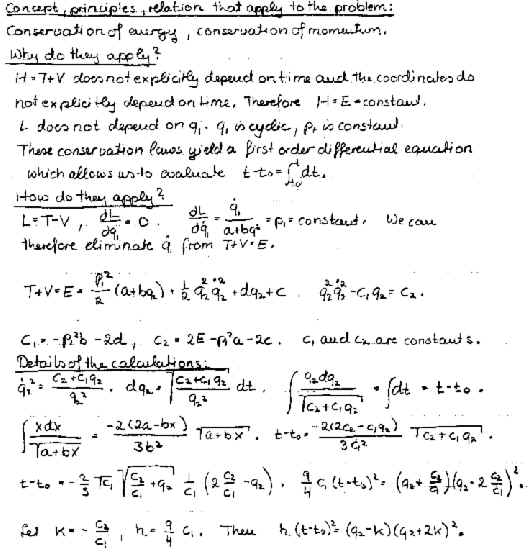 Concept, principles, relation that apply to the problem:
Conservation of energy, conservation of momentum.
Why do they apply?
H = T+V does not explicitly depend on time and the coordinates do
not explicitly depend on time. Therefore H = E = constant.
L does not depend on q₁. q₁ is cyclic, p₁ is constant.
These conservation laws yield a first order differential equation
which allows us to evaluate t-t₀ = ∫dt.
How do they apply?
L = T-V, dL/dq₁ = 0. dL/dq̇₁ = q̇₁/(a+bq₂) = p₁ = constant. We can
therefore eliminate q̇ from T+V = E.
T+V = E = p₁²/2 (a+bq₂) + ½ q₂² q̇₂² + dq₂ + c. q₂² q̇₂² - c₁q₂ = c₂.
c₁ = -p₁²b - 2d, c₂ = 2E - p₁²a - 2c. c₁ and c₂ are constants.
Details of the calculations:
q̇₂² = (c₂+c₁q₂)/q₂². dq₂ = √((c₂+c₁q₂)/q₂²) dt. ∫ q₂dq₂/√(c₂+c₁q₂) = ∫dt = t-t₀.
∫ xdx/√(a+bx) = -2(2a-bx)/3b² √(a+bx). t-t₀ = -2(2c₂-c₁q₂)/3c₁² √(c₂+c₁q₂).
t-t₀ = -⅔ √c₁ √(c₂/c₁ + q₂) 1/c₁ (2 c₂/c₁ - q₂). 9/4 c₁ (t-t₀)² = (q₂ + c₂/c₁)(q₂ - 2 c₂/c₁)².
Let k = -c₂/c₁, h = 9/4 c₁. Then h(t-t₀)² = (q₂-k)(q₂+2k)².